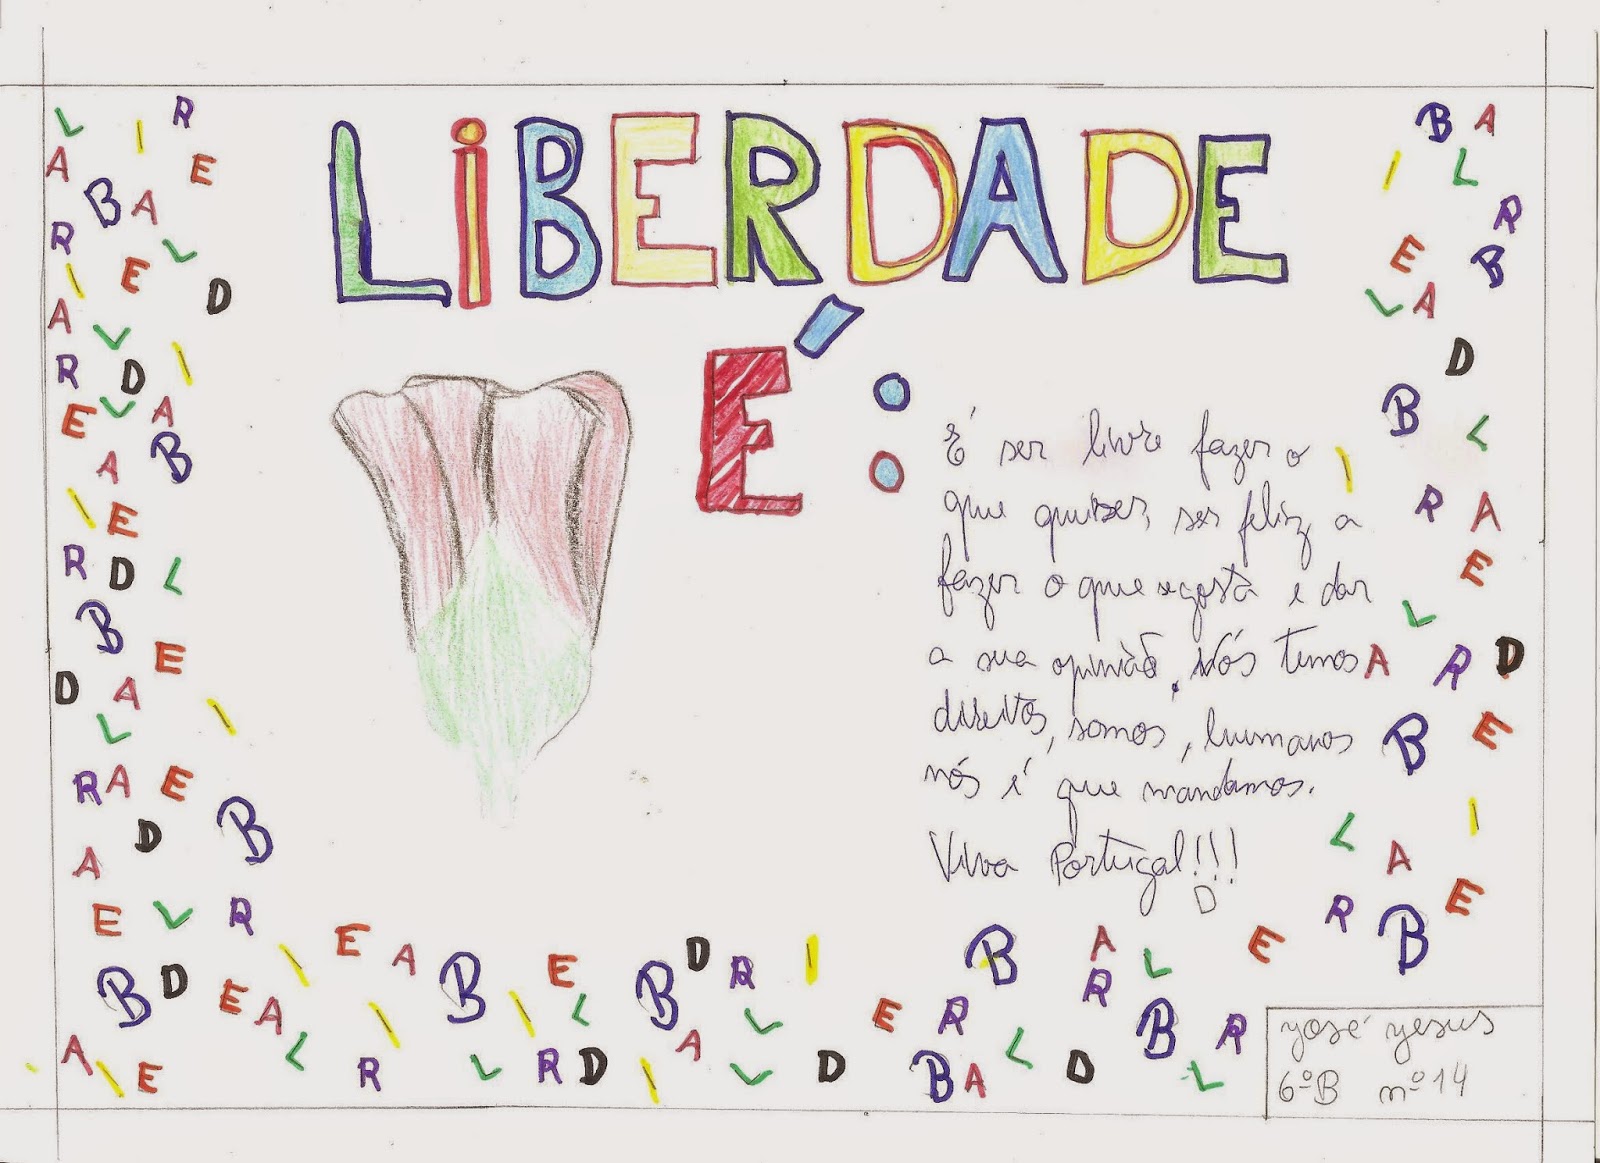 LIBERDADE
É:
É ser livre fazer o
que quiser, ser feliz, a
fazer o que se gosta e dar
a sua opinião. Nós temos
direitos, somos, humanos
nós é que mandamos.
Viva Portugal!!!
D
José Jesus
6ºB nº14